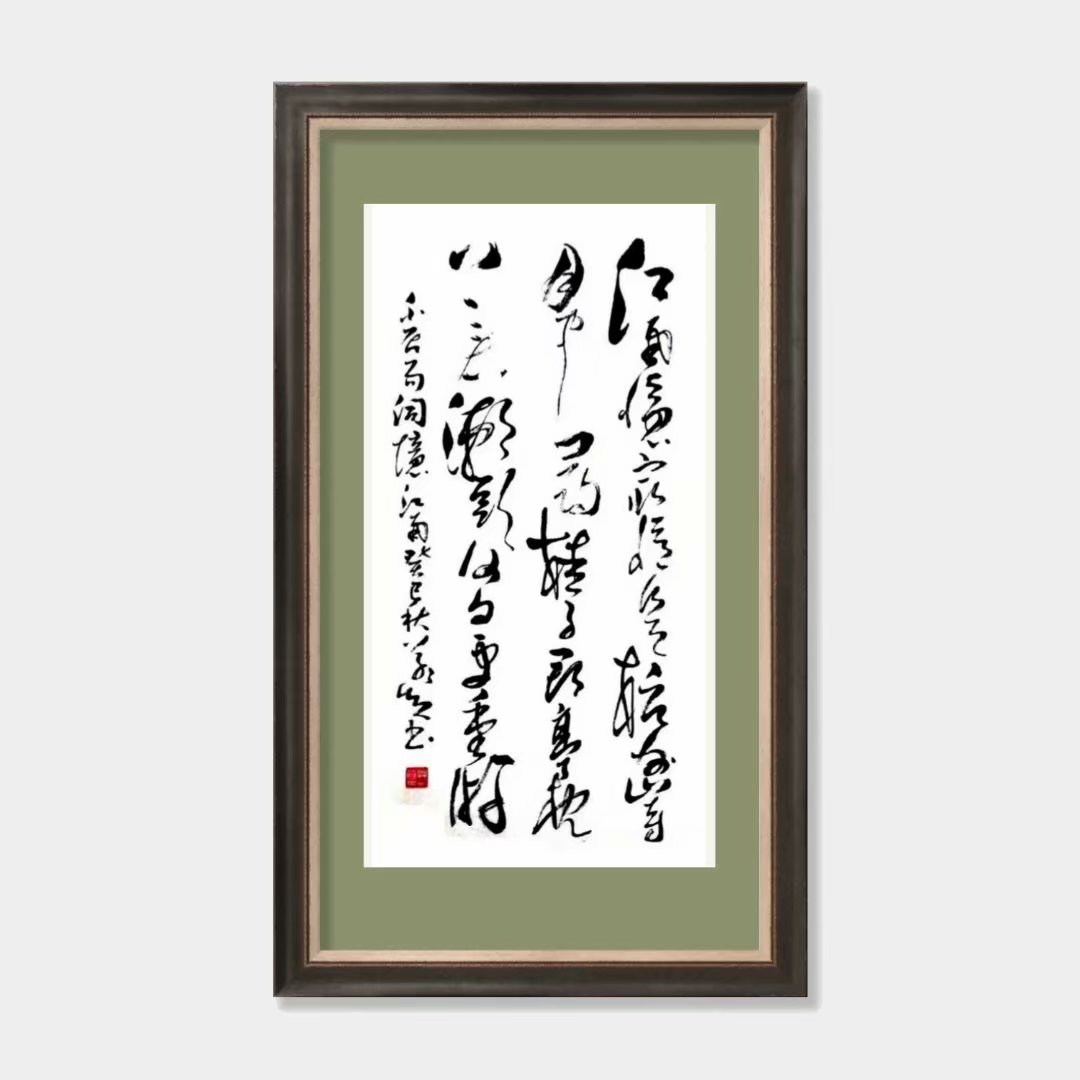 江南憶最憶是杭州山寺
月中尋桂子郡亭枕
上看潮頭何日更重游
白居易詞憶江南癸巳秋書